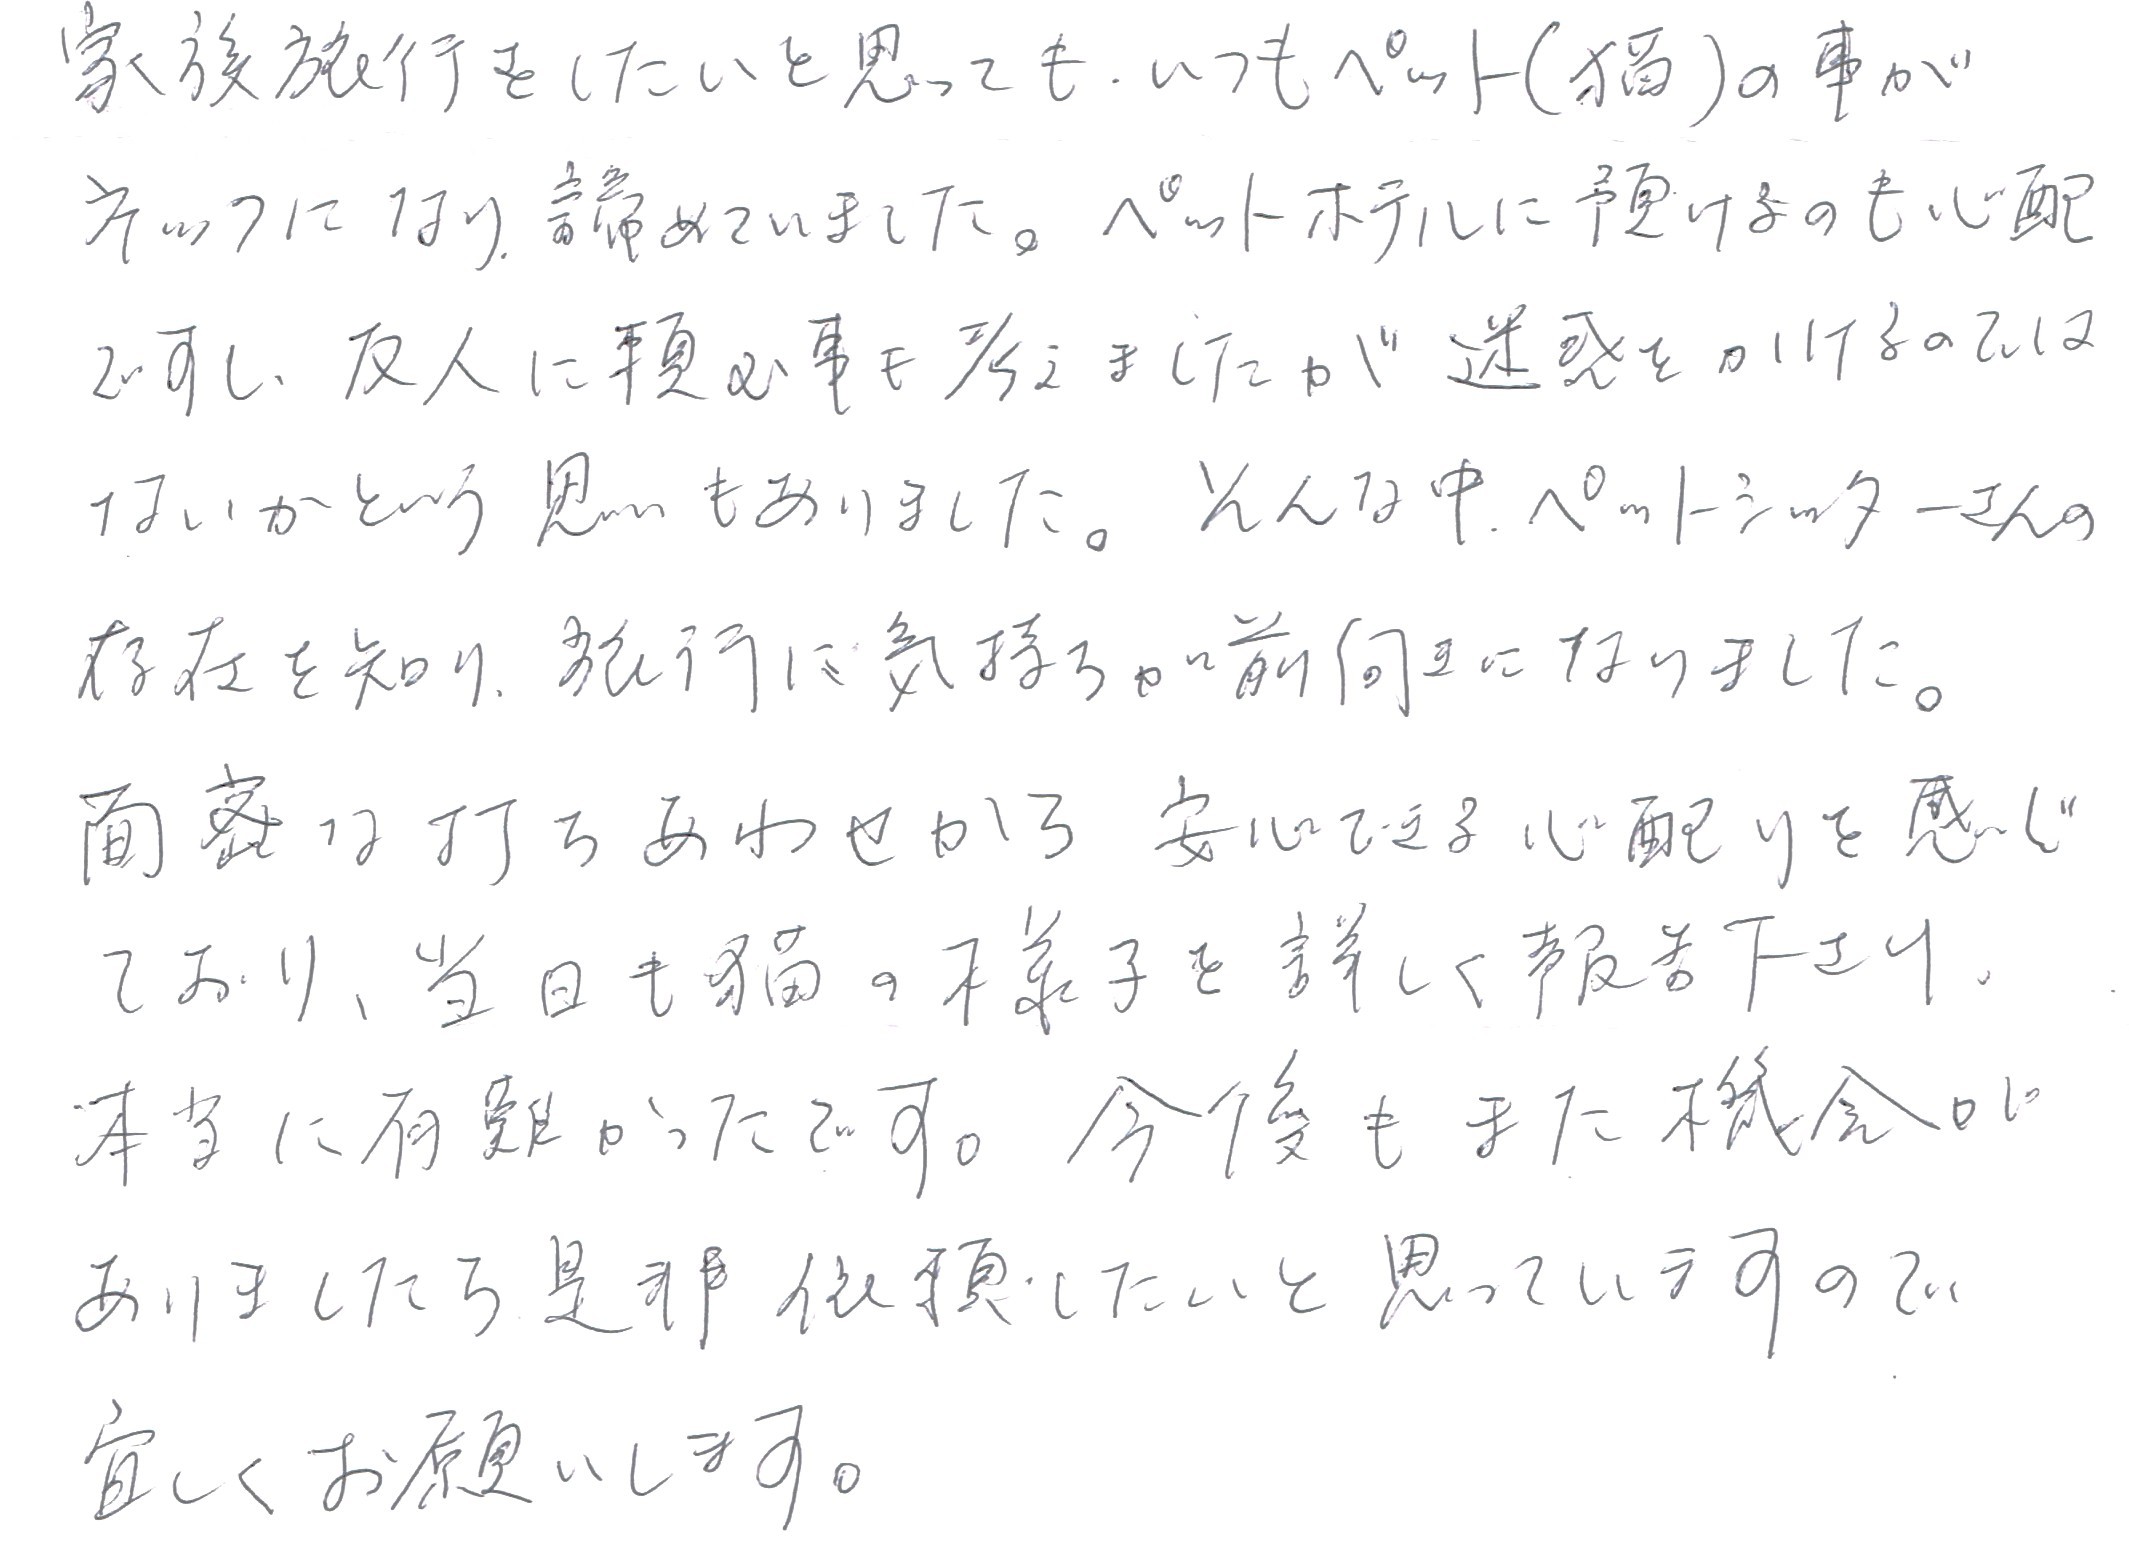 家族旅行をしたいと思っても、いつもペット(猫)の事が
ネックになり、諦めていました。ペットホテルに預けるのも心配
ですし、友人に頼む事も考えましたが迷惑をかけるのでは
ないかという思いもありました。そんな中、ペットシッターさんの
存在を知り、旅行に気持ちが前向きになりました。
面密な打ちあわせから安心できる心配りを感じ
ており、当日も猫の様子を詳しく報告下さり、
本当に有難かったです。今後もまた機会が
ありましたら是非依頼したいと思っていますので
宜しくお願いします。